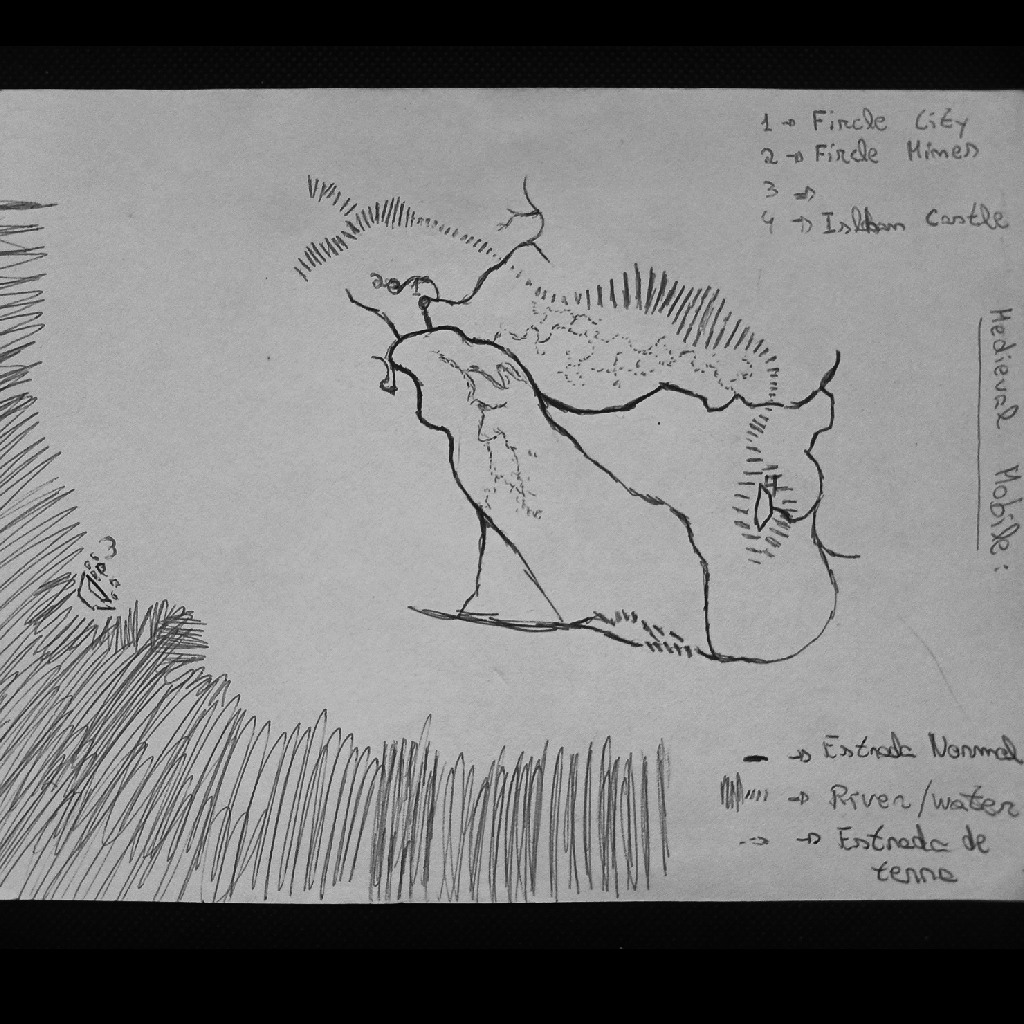 1 → Fircle City
2 → Fircle Mines
3 ⇒
4 → Castle
Medieval Mobile:
2 1
4
3
→ Estrada Normal
→ River/water
→ Estrada de
terra